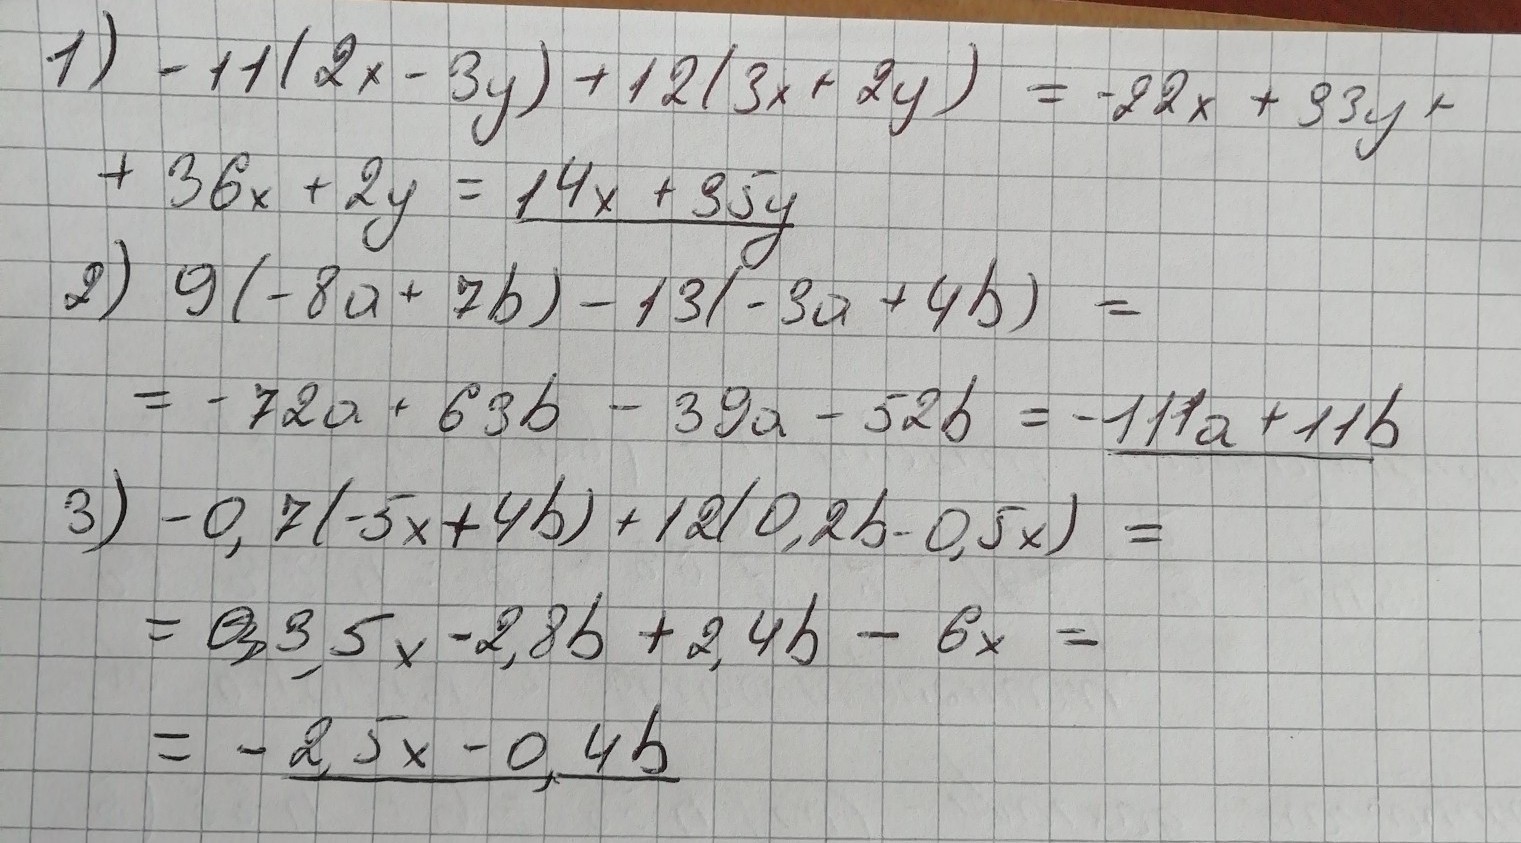 1) -11(2x - 3y) + 12(3x + 2y) = -22x + 33y +
+ 36x + 2y = 14x + 35y
2) 9(-8a + 7b) - 13(-3a + 4b) =
= -72a + 63b - 39a - 52b = -111a + 11b
3) -0,7(-5x + 4b) + 12(0,2b - 0,5x) =
= 3,5x - 2,8b + 2,4b - 6x =
= - 2,5x - 0,4b